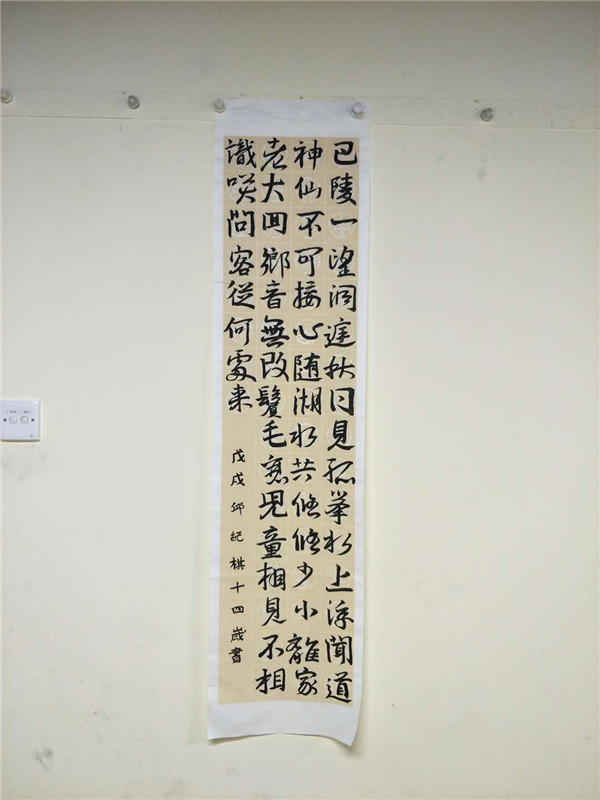 巴陵一望洞庭秋日見孤峯水上浮聞道
神仙不可接心随湖水共悠悠少小離家
老大回鄉音無改鬢毛衰兒童相見不相
識咲問客從何處来
戊戌邱紀棋十四歲書